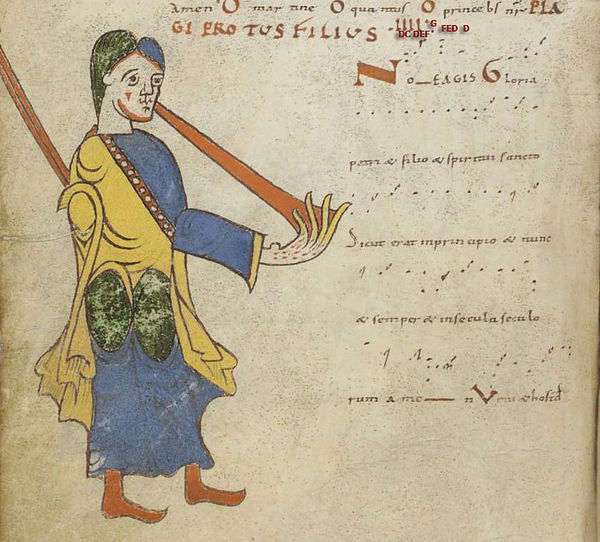 Amen O mar tine O qua mus O princebs nr PLA
GI PROTUS FILIUS
DC DEF G FED D
NO EAGIS Gloria
patri & filio & spiritui sancto
Sicut erat inprincipio & nunc
& semper & insecula seculo
rum a me n V